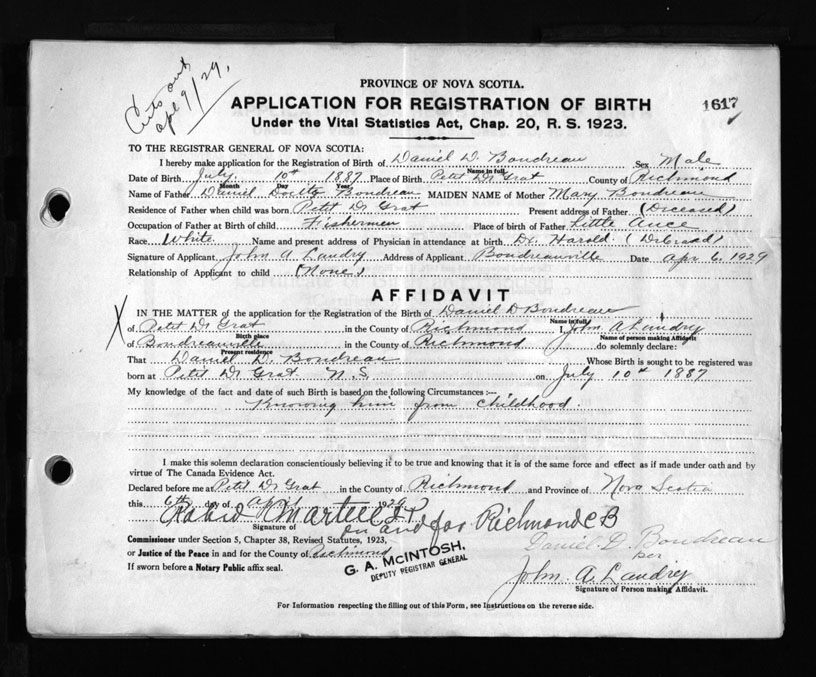 Certs out
Apl 9/29.
PROVINCE OF NOVA SCOTIA.
APPLICATION FOR REGISTRATION OF BIRTH
1617
Under the Vital Statistics Act, Chap. 20, R. S. 1923.
TO THE REGISTRAR GENERAL OF NOVA SCOTIA:
I hereby make application for the Registration of Birth of Daniel D. Boudreau Sex Male
Name in full
Date of Birth July 10th 1887 Place of Birth Petit De Grat County of Richmond
Month Day Year
Name of Father Daniel Boudreau MAIDEN NAME of Mother Mary Boudreau
Residence of Father when child was born Petit De Grat Present address of Father (Deceased)
Occupation of Father at Birth of child Fishermen Place of birth of Father Little Ance
Race White Name and present address of Physician in attendance at birth Dr. Harold (Deceased)
Signature of Applicant John A Landry Address of Applicant Boudreauville Date Apr 6, 1929
Relationship of Applicant to child (None)
AFFIDAVIT
X
IN THE MATTER of the application for the Registration of Birth of Daniel D Boudreau
Name in full
of Petit De Grat in the County of Richmond I, John A Landry
Birth place Name of person making Affidavit
of Boudreauville in the County of Richmond do solemnly declare:
Present residence
That Daniel D. Boudreau Whose Birth is sought to be registered was
born at Petit De Grat N.S. on July 10th 1887
My knowledge of the fact and date of such Birth is based on the following Circumstances:—
Knowing him from childhood.
I make this solemn declaration conscientiously believing it to be true and knowing that it is of the same force and effect as if made under oath and by
virtue of The Canada Evidence Act.
Declared before me at Petit De Grat in the County of Richmond and Province of Nova Scotia
this 6th day of April 1929
David Martell J.P.
in and for Richmond C B
Signature of
Commissioner under Section 5, Chapter 38, Revised Statutes, 1923,
or Justice of the Peace in and for the County of Richmond
If sworn before a Notary Public affix seal.
G. A. McINTOSH,
DEPUTY REGISTRAR GENERAL
Daniel. D. Boudreau
per
John. A. Landry
Signature of Person making Affidavit.
For Information respecting the filling out of this Form, see Instructions on the reverse side.